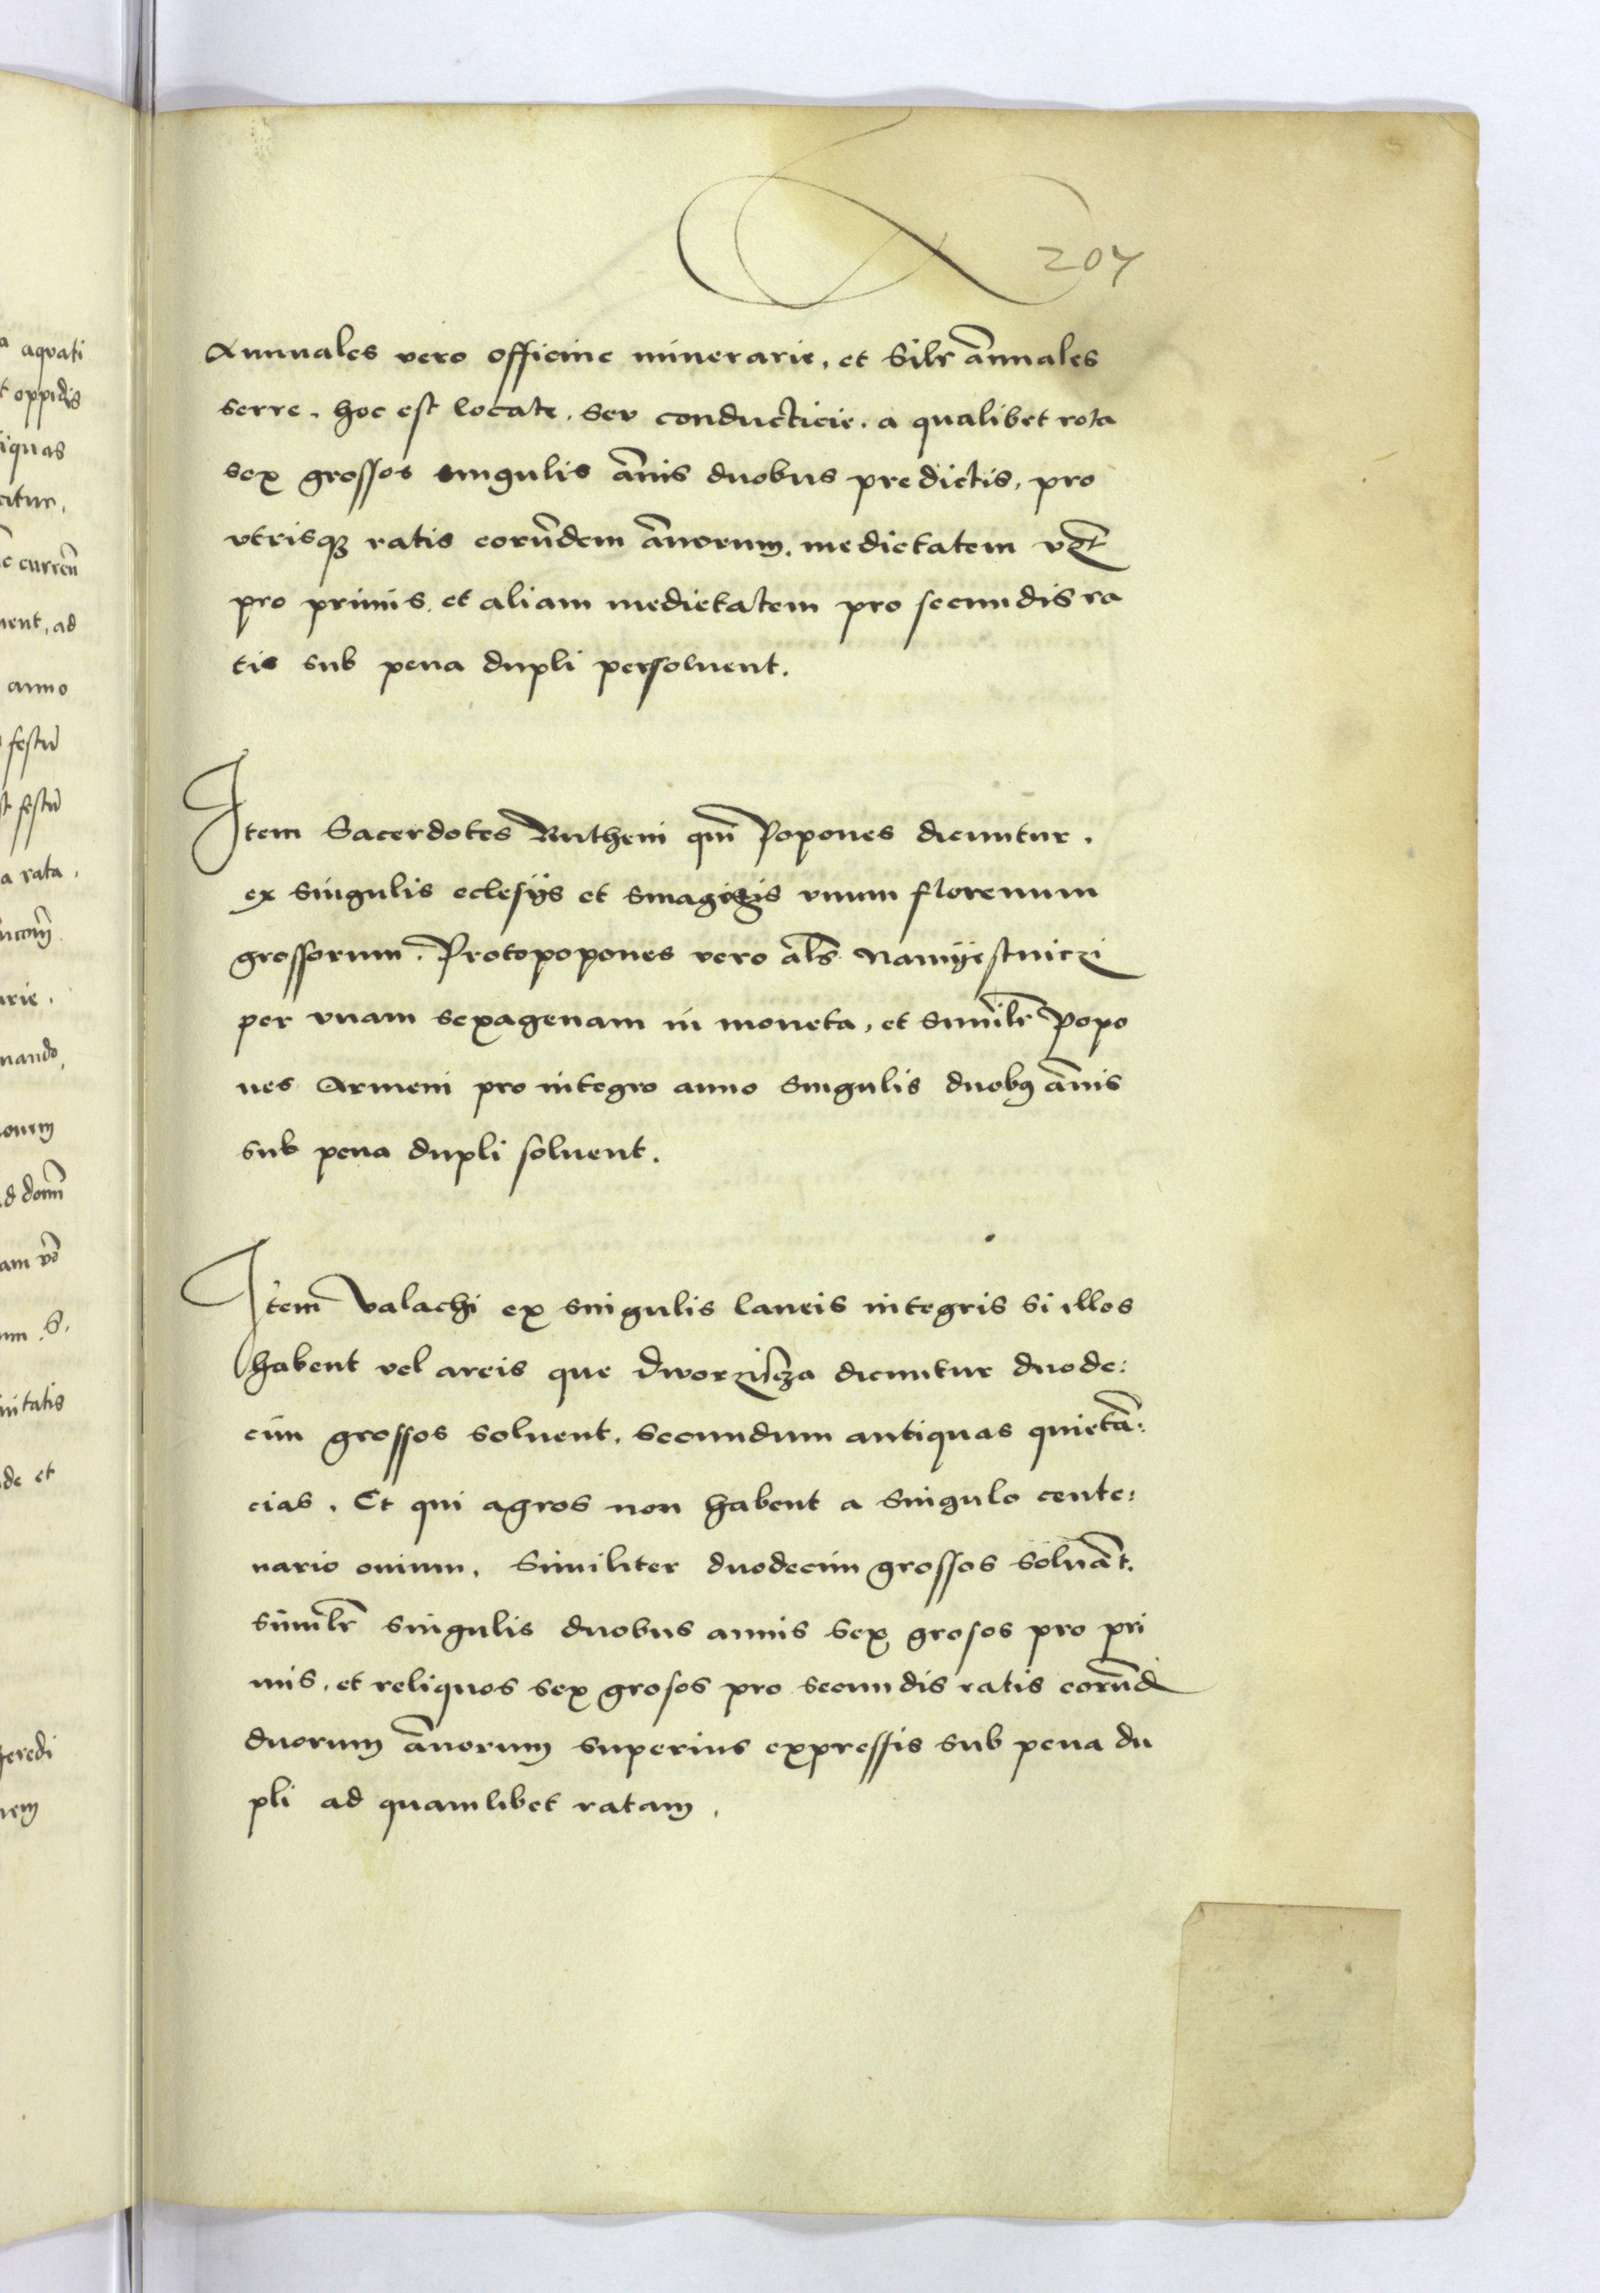 207
Annuales vero officine minerarie, et Silr ānnales
serre. hoc est locate. Seu conducticie. a qualibet rota
sex grossos singulis ānis duobus predictis, pro
vtrisq3 ratis eorūdem ānorum. medietatem vz
pro primis. et aliam medietatem pro secundis ra
tis sub pena dupli persoluent.
Item Sacerdotes Rutheni qui Popones dicuntur.
ex singulis eclesÿs et sinagogis vnum florenum
grossorum. Protopopones vero als Namÿestniczi
per vnam sexagenam in moneta, et similr Popo
nes Armeni pro integro anno singulis duob9 ānis
sub pena dupli soluent.
Item Valachi ex singulis laneis integris si illos
habent vel areis que dworziscza dicuntur duode:
cim grossos soluent. Secundum antiquas quietā:
cias. Et qui agros non habent a singulo cente:
nario ouium. Similiter duodecim grossos soluāt.
similr singulis duobus annis sex grosos pro pri
mis. et reliquos sex grosos pro secundis ratis eorūd
duorum ānorum superius expressis sub pena du
pli ad quamlibet ratam.
aquati
oppidis
iquas
currēn
ment, ad
anno
festū
festū
a rata.
de et